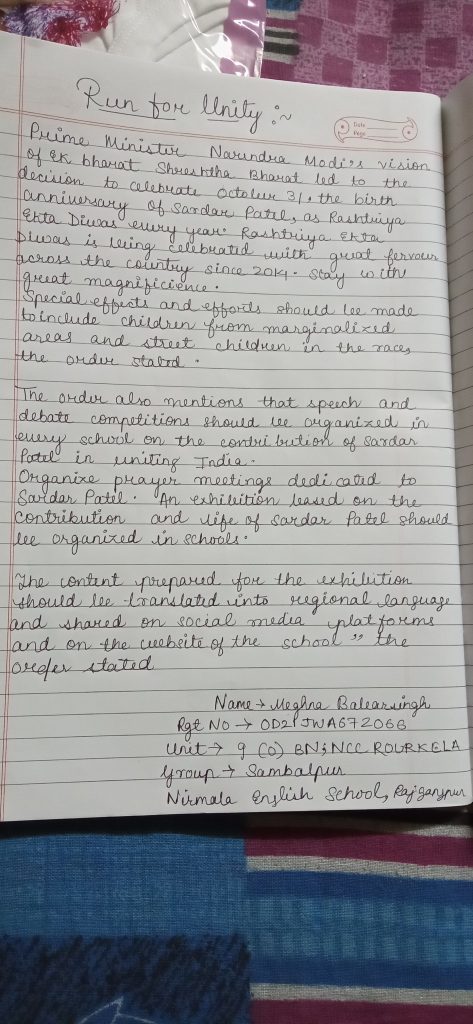 Run for Unity :~
Date
Page
Prime Minister Narendra Modi's vision
of Ek bharat Shreshtha Bharat led to the
decision to celebrate October 31, the birth
anniversary of Sardar Patel, as Rashtriya
Ekta Diwas every year. Rashtriya Ekta
Diwas is being celebrated with great fervour
across the country since 2014. Stay with
great magnificience.
Special effects and efforts should be made
to include children from marginalized
areas and street children in the races,
the order stated.
The order also mentions that speech and
debate competitions should be organized in
every school on the contribution of Sardar
Patel in uniting India.
Organize prayer meetings dedicated to
Sardar Patel. An exhibition based on the
contribution and life of Sardar Patel should
be organized in schools.
The content prepared for the exhibition
should be translated into regional language
and shared on social media platforms
and on the website of the school" the
order stated
Name → Meghna Balearsingh
Rgt No → OD21JWA672066
Unit → 9 (O) BN; NCC ROURKELA
Group → Sambalpur
Nirmala English School, Rajgangpur